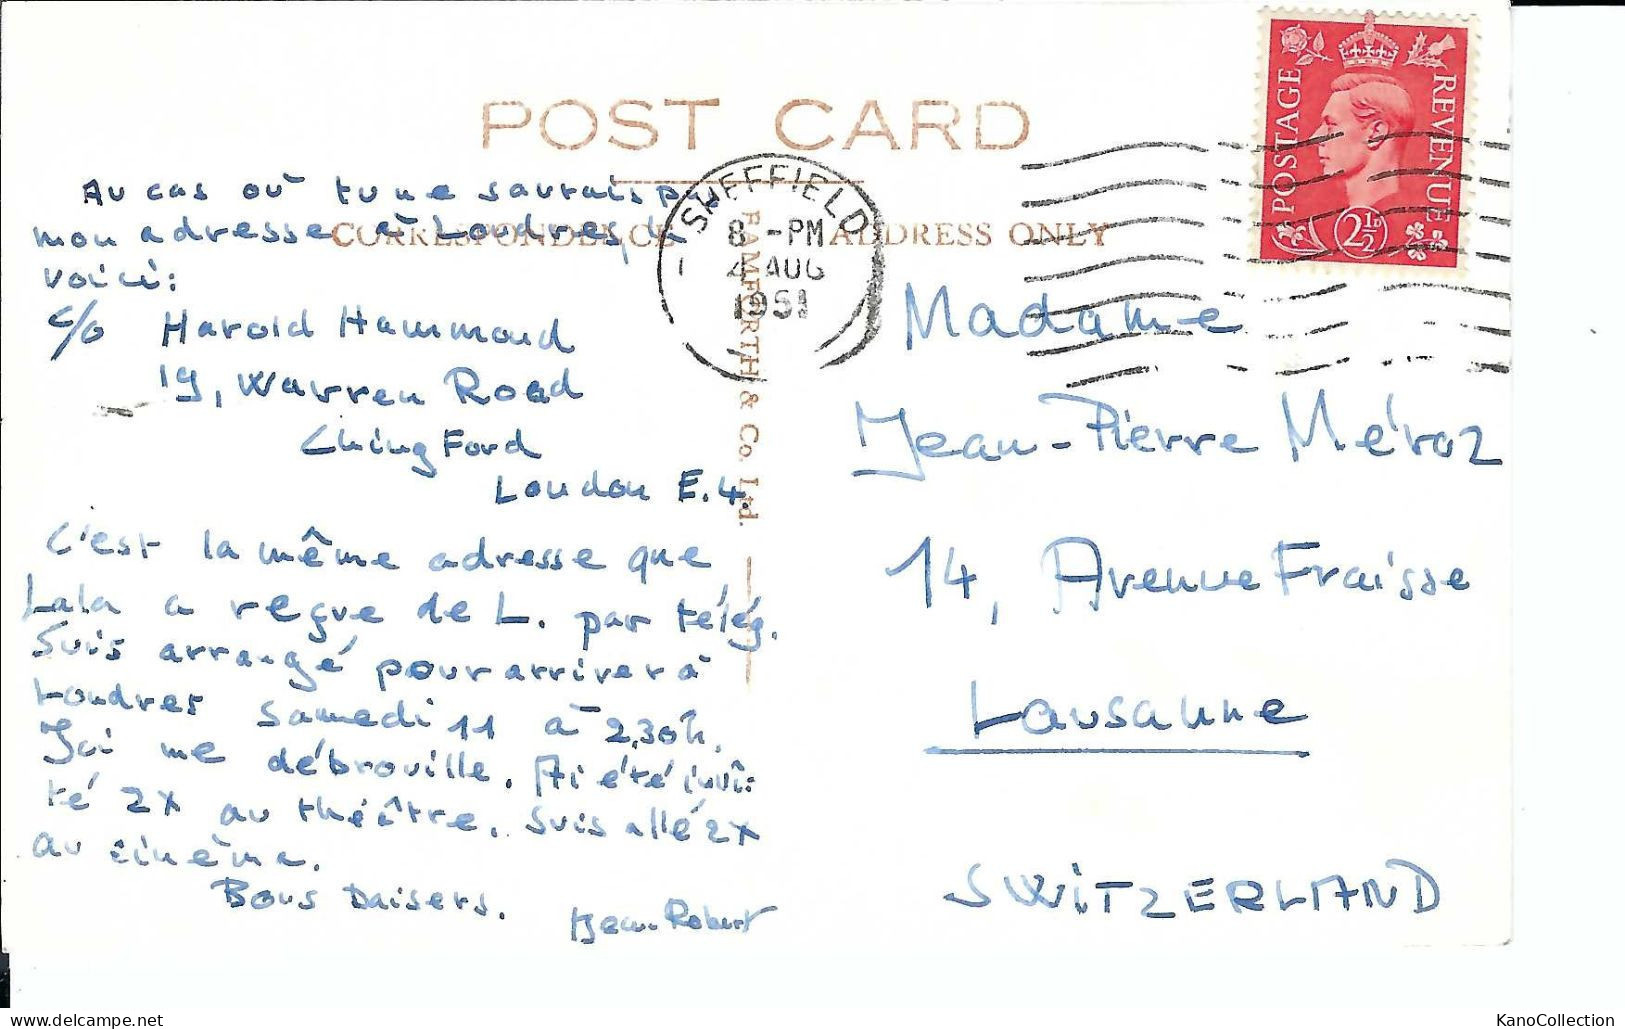 POST CARD
CORRESPONDENCE
ADDRESS ONLY
BAMFORTH & Co. Ltd.
POSTAGE
REVENUE
2½D
SHEFFIELD
8 -PM
4 AUG
1951
Au cas où tu ne saurais pas
mon adresse à Londres, la
voici:
c/o Harold Hammond
19, Warren Road
ChingFord
London E.4.
C'est la même adresse que
Lala a reçue de L. par télég.
Suis arrangé pour arriver à
Londres samedi 11 à 2.30h.
J'ai me débrouille. Ai été invi-
té 2x au théâtre. Suis allé 2x
au cinéma.
Bons Baisers. Jean-Robert
Madame
Jean-Pierre Méroz
14, Avenue Fraisse
Lausanne
SWITZERLAND
delcampe.net
KanoCollection